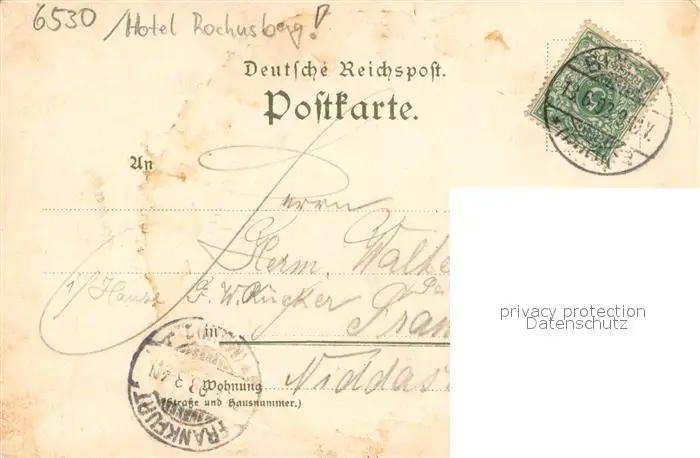 6530 / Hotel Rochusberg!
Deutsche Reichspost.
Postkarte.
An
Herrn
Herm. Walte
i/ Hause G. W. Rücker
Fran
in
Wohnung
(Straße und Hausnummer.)
Niddas
BIN
5
FRANKFURT
privacy protection
Datenschutz